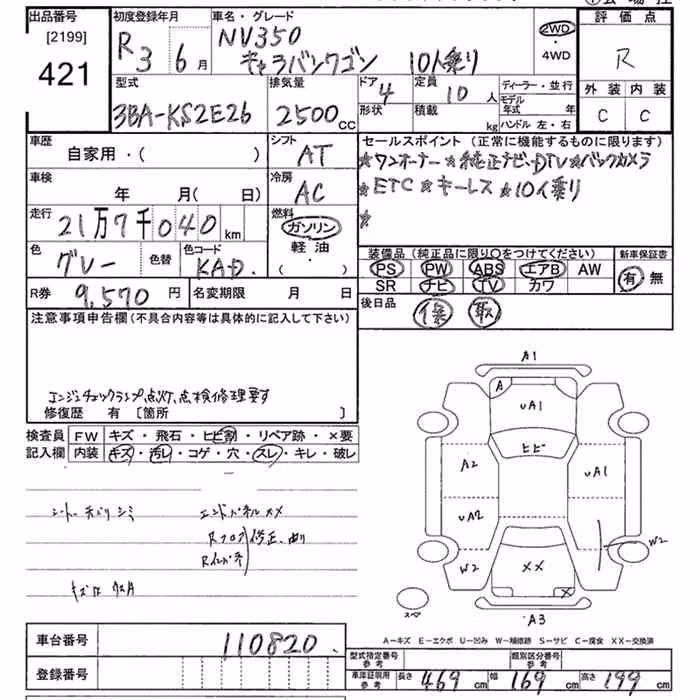 出品番号 初度登録年月 車名・グレード 評価点
[2199] R3 6月 NV350 2WD
421 キャラバンワゴン 10人乗り ・4WD R
型式 排気量 ドア 4 定員 10人 ディーラー・並行 外装 内装
3BA-KS2E26 2500cc 形状 積載 kg モデル年式 年 C C
ハンドル 左・右
車歴 シフト セールスポイント (正常に機能するものに限ります)
自家用・( ) AT ★ワンオーナー★純正ナビ、DTV★バックカメラ
車検 冷房 ★ETC★キーレス★10人乗り
年 月( 日) AC ★
走行 燃料
21万7千040km ガソリン
色 グレー 色替 色コード KAD. 軽油
・( )
装備品 (純正品に限り○をつけてください) 新車保証書
PS PW ABS エアB AW 有・無
SR ナビ TV カワ
R券 9,570円 名変期限 月 日 後日品 保 取
注意事項申告欄 (不具合内容等は具体的に記入して下さい)
エンジンチェックランプ点灯、点検修理要す
修復歴 有 [箇所 ]
検査員 FW キズ・飛石・ヒビ割・リペア跡・×要
記入欄 内装 キズ・汚レ・コゲ・穴・スレ・キレ・破レ
シミ エンドパネルXX
Rフロア 修正、曲り
A1
A
UA1
ヒビ
A2 UA1
UA2 W2
W2 XX
X
スペ A3
A-キズ E-エクボ U-凹み W-補修跡 S-サビ C-腐食 XX-交換済
車台番号 110820.
登録番号
型式指定番号 参考 類別区分番号 参考
車庫証明用 参考 長さ 469cm 幅 169cm 高さ 199cm